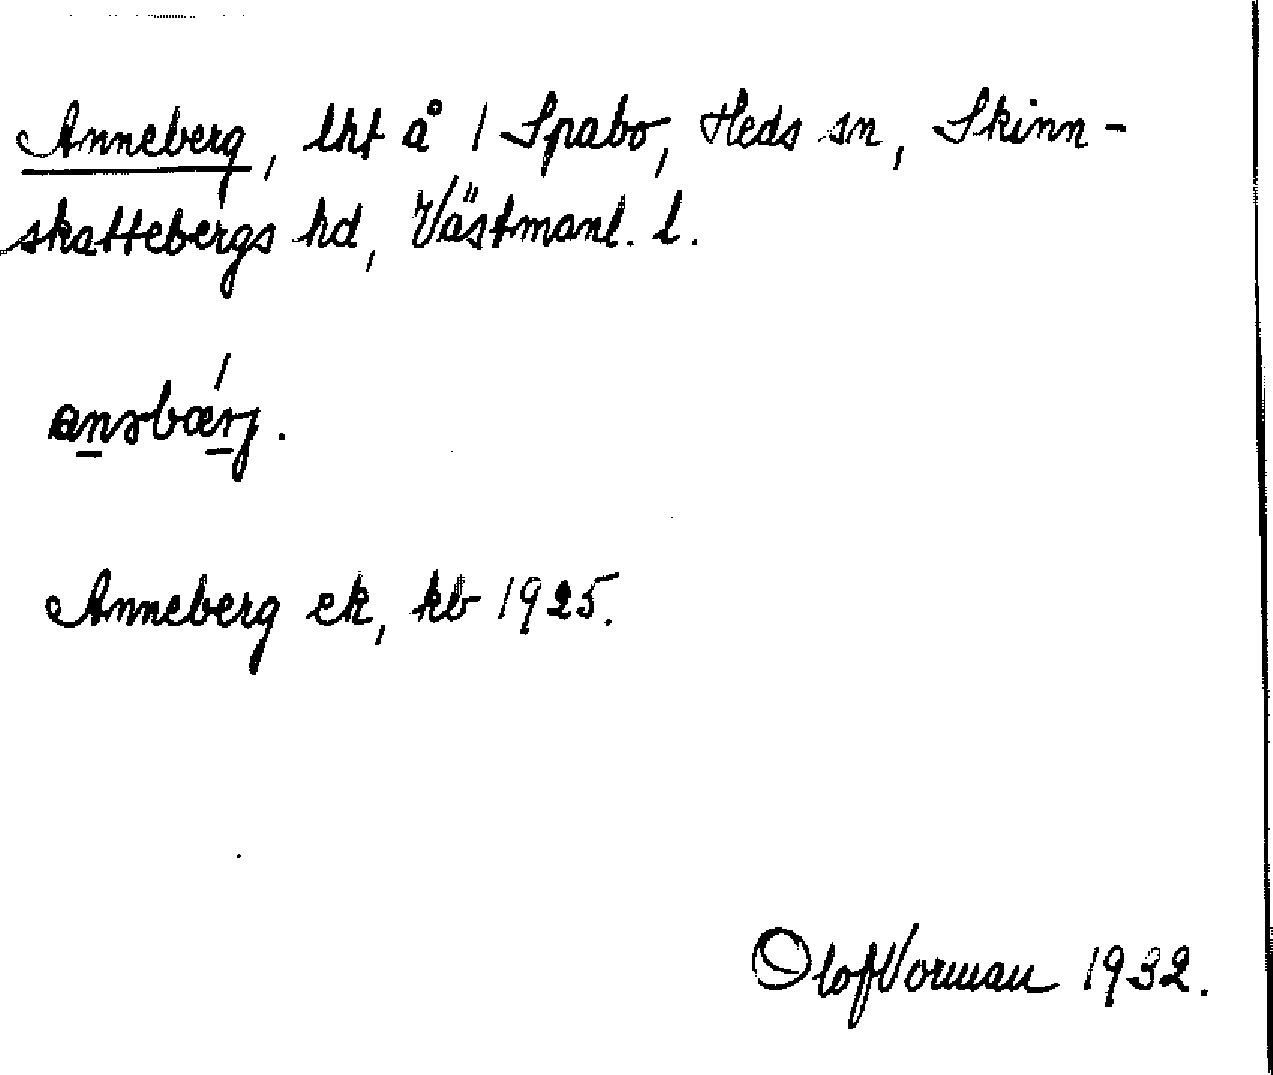 Anneberg, lht å 1 Spabo, Heds sn, Skinn-
skattebergs hd, Västmanl. l.
Anneberg ek, kb 1925.
Olof Vorman 1932.